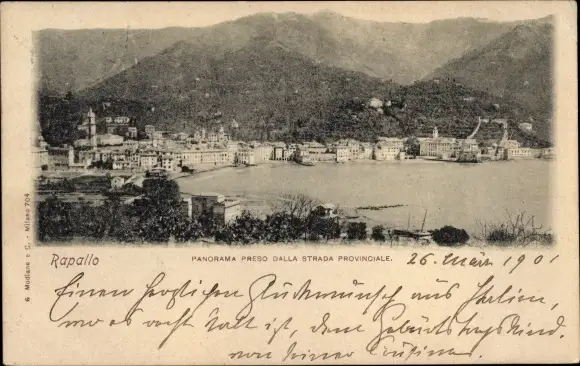 Rapallo
PANORAMA PRESO DALLA STRADA PROVINCIALE.
26. März 1901
Einen herzlichen Glückwunsch aus Italien,
wo es recht kalt ist, dem Geburtstagskind.
von seiner Cousine
6 Modiano e C. - Milano 704